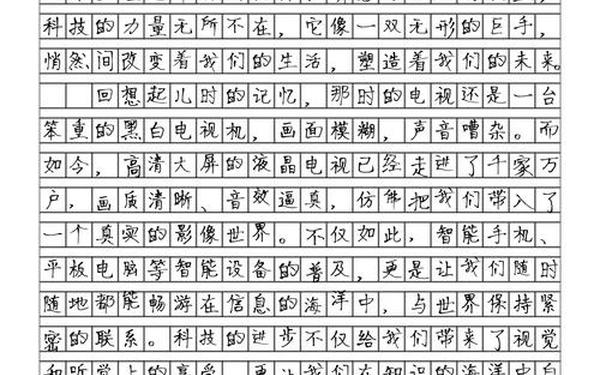 科技的力量无所不在，它像一双无形的巨手，
悄然间改变着我们的生活，塑造着我们的未来。
回想起儿时的记忆，那时的电视还是一台
笨重的黑白电视机，画面模糊，声音嘈杂。而
如今，高清大屏的液晶电视已经走进了千家万
户，画质清晰、音效逼真，仿佛把我们带入了
一个真实的影像世界。不仅如此，智能手机、
平板电脑等智能设备的普及，更是让我们随时
随地都能畅游在信息的海洋中，与世界保持紧
密的联系。科技的进步不仅给我们带来了视觉
和听觉上的享受，更让我们在知识的海洋中自